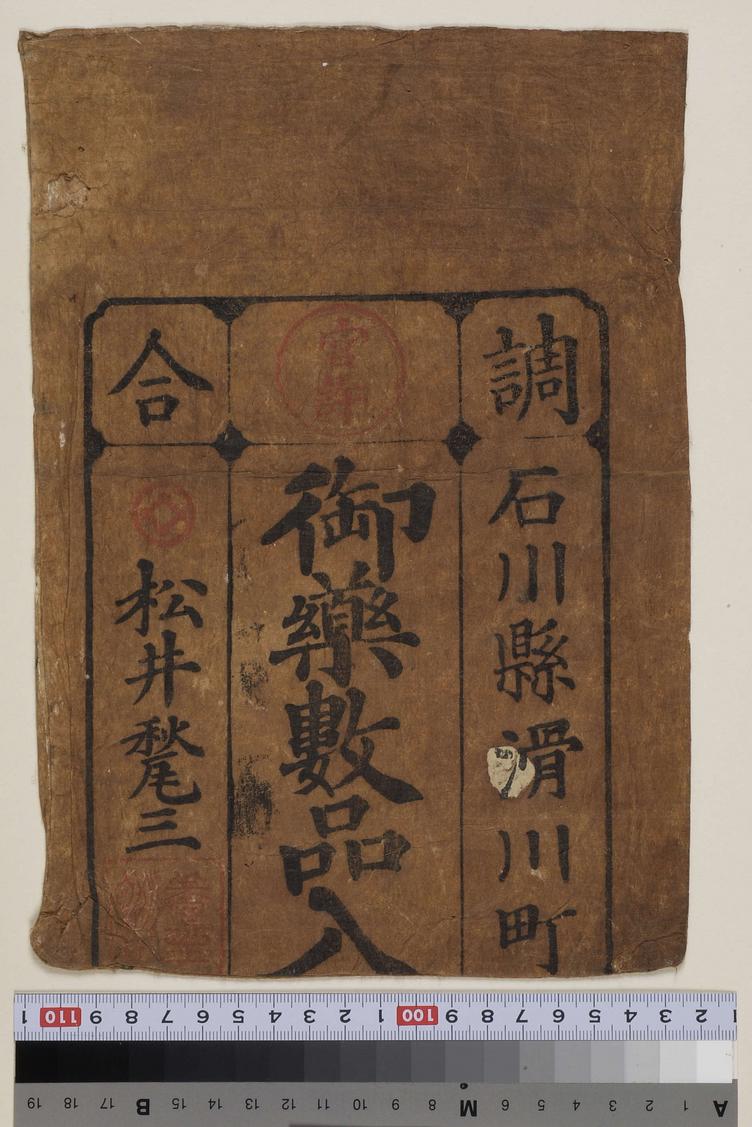 調
石川縣滑川町
官許
御藥數品入
合
松井
三
1 110 9 8 7 6 5 4 3 2 1 100 9 8 7 6 5 4 3 2 1
19 18 17 16 B 15 14 13 12 11 10 9 8 M 6 5 4 3 2 1 A